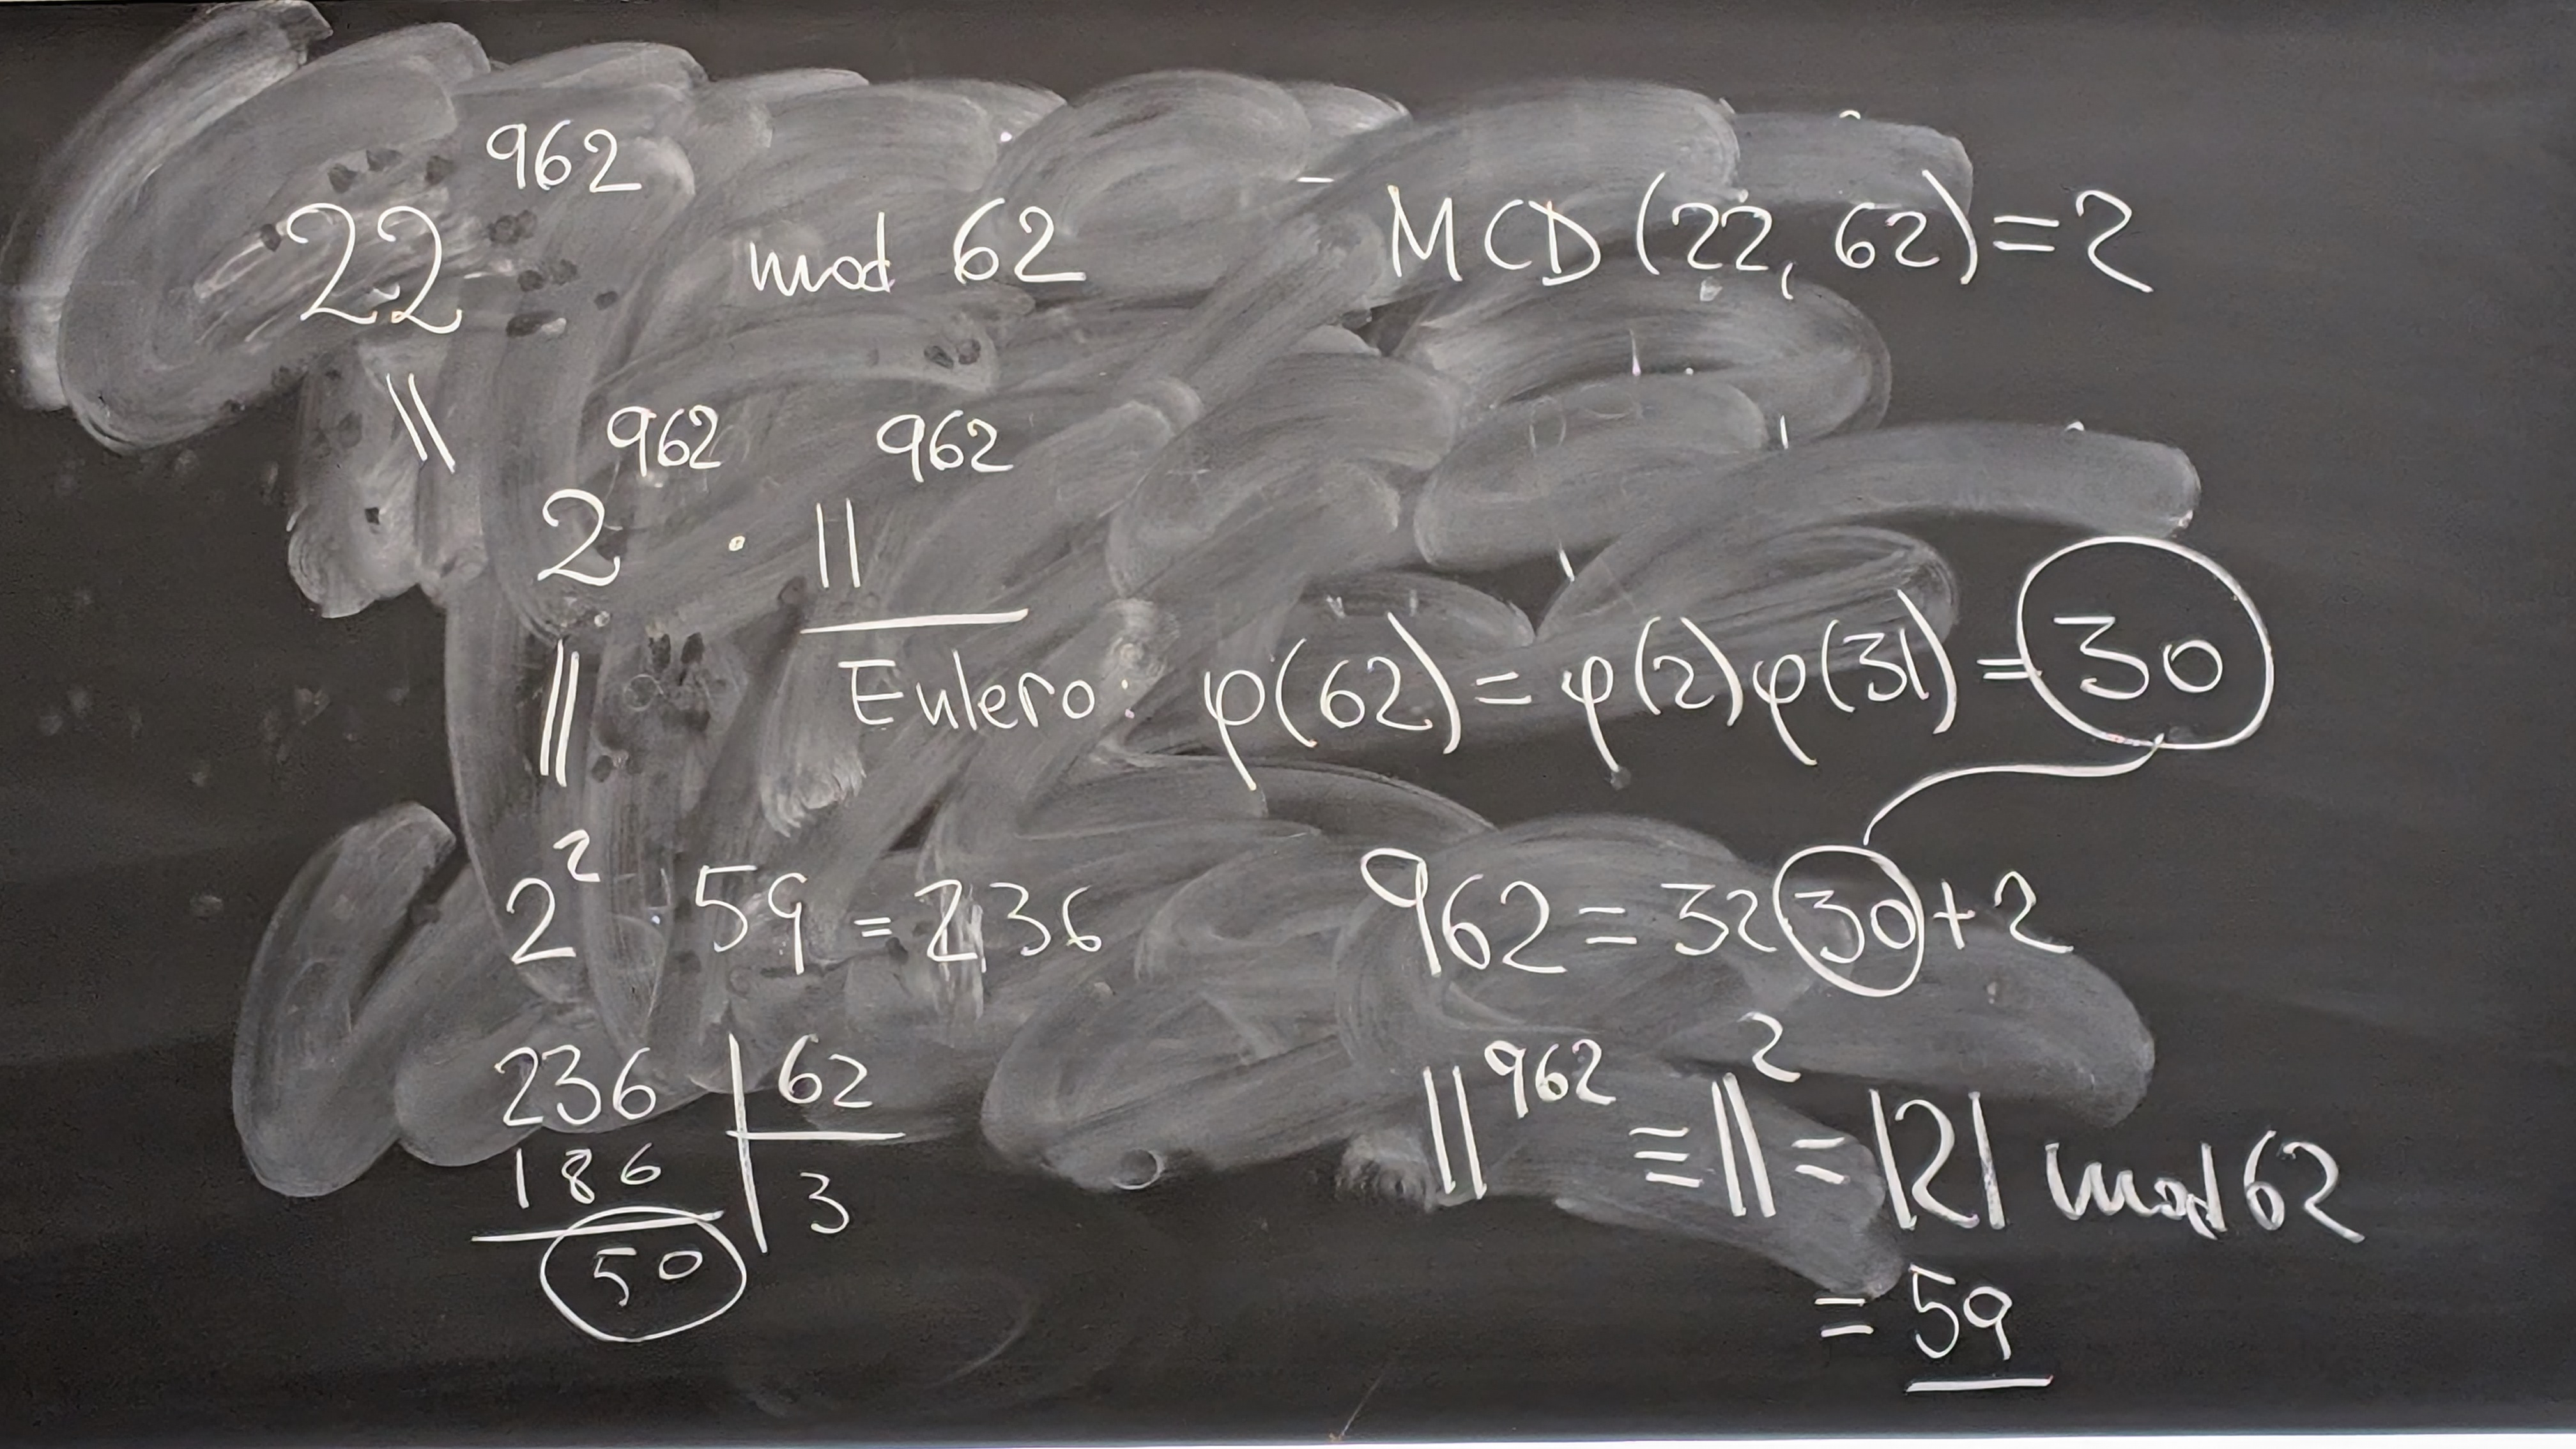 22^962 mod 62 MCD(22, 62)=2
||
2^962 · 11^962
|| Eulero: φ(62)=φ(2)φ(31)=30
2^2 · 59 = 236 962=32 30+2
236 | 62 11^962 ≡ 11^2 = 121 mod 62
186 | 3
50 = 59